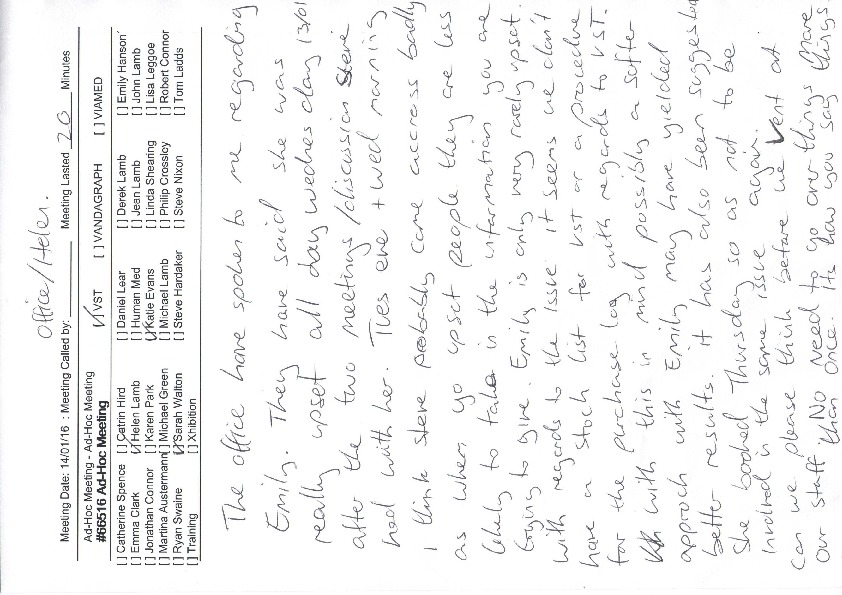 Office/Helen.
Meeting Date: 14/01/16 : Meeting Called by: Meeting Lasted 20 Minutes
Ad-Hoc Meeting - Ad-Hoc Meeting
#66516 Ad-Hoc Meeting [✓] VST [ ] VANDAGRAPH [ ] VIAMED
[ ] Catherine Spence [ ] Catrin Hird [ ] Daniel Lear [ ] Derek Lamb [ ] Emily Hanson
[ ] Emma Clark [✓] Helen Lamb [ ] Human Med [ ] Jean Lamb [ ] John Lamb
[ ] Jonathan Connor [ ] Karen Park [✓] Katie Evans [ ] Linda Shearing [ ] Lisa Leggoe
[ ] Martina Austermann [ ] Michael Green [ ] Michael Lamb [ ] Philip Crossley [ ] Robert Connor
[ ] Ryan Swaine [✓] Sarah Walton [ ] Steve Hardaker [ ] Steve Nixon [ ] Tom Ladds
[ ] Training [ ] Xhibition
The office have spoken to me regarding
Emily. They have said she was
really upset all day wednesday 13/01
after the two meetings/discussion Steve
had with her. Tues eve + wed morning
I think Steve probably came accross badly
as when yo upset people they are less
likely to take in the information you are
trying to give. Emily is only very rarely upset.
with regards to the issue it seems we dont
have a stock list for VST or a procedure
for the purchase log with regards to VST.
with this in mind possibly a softer
approch with Emily may have yielded
better results. it has also been suggested
She booked Thursday so as not to be
involved in the same issue again.
Can we please think before we vent at
our staff. No need to go over things more
than once. Its how you say things.